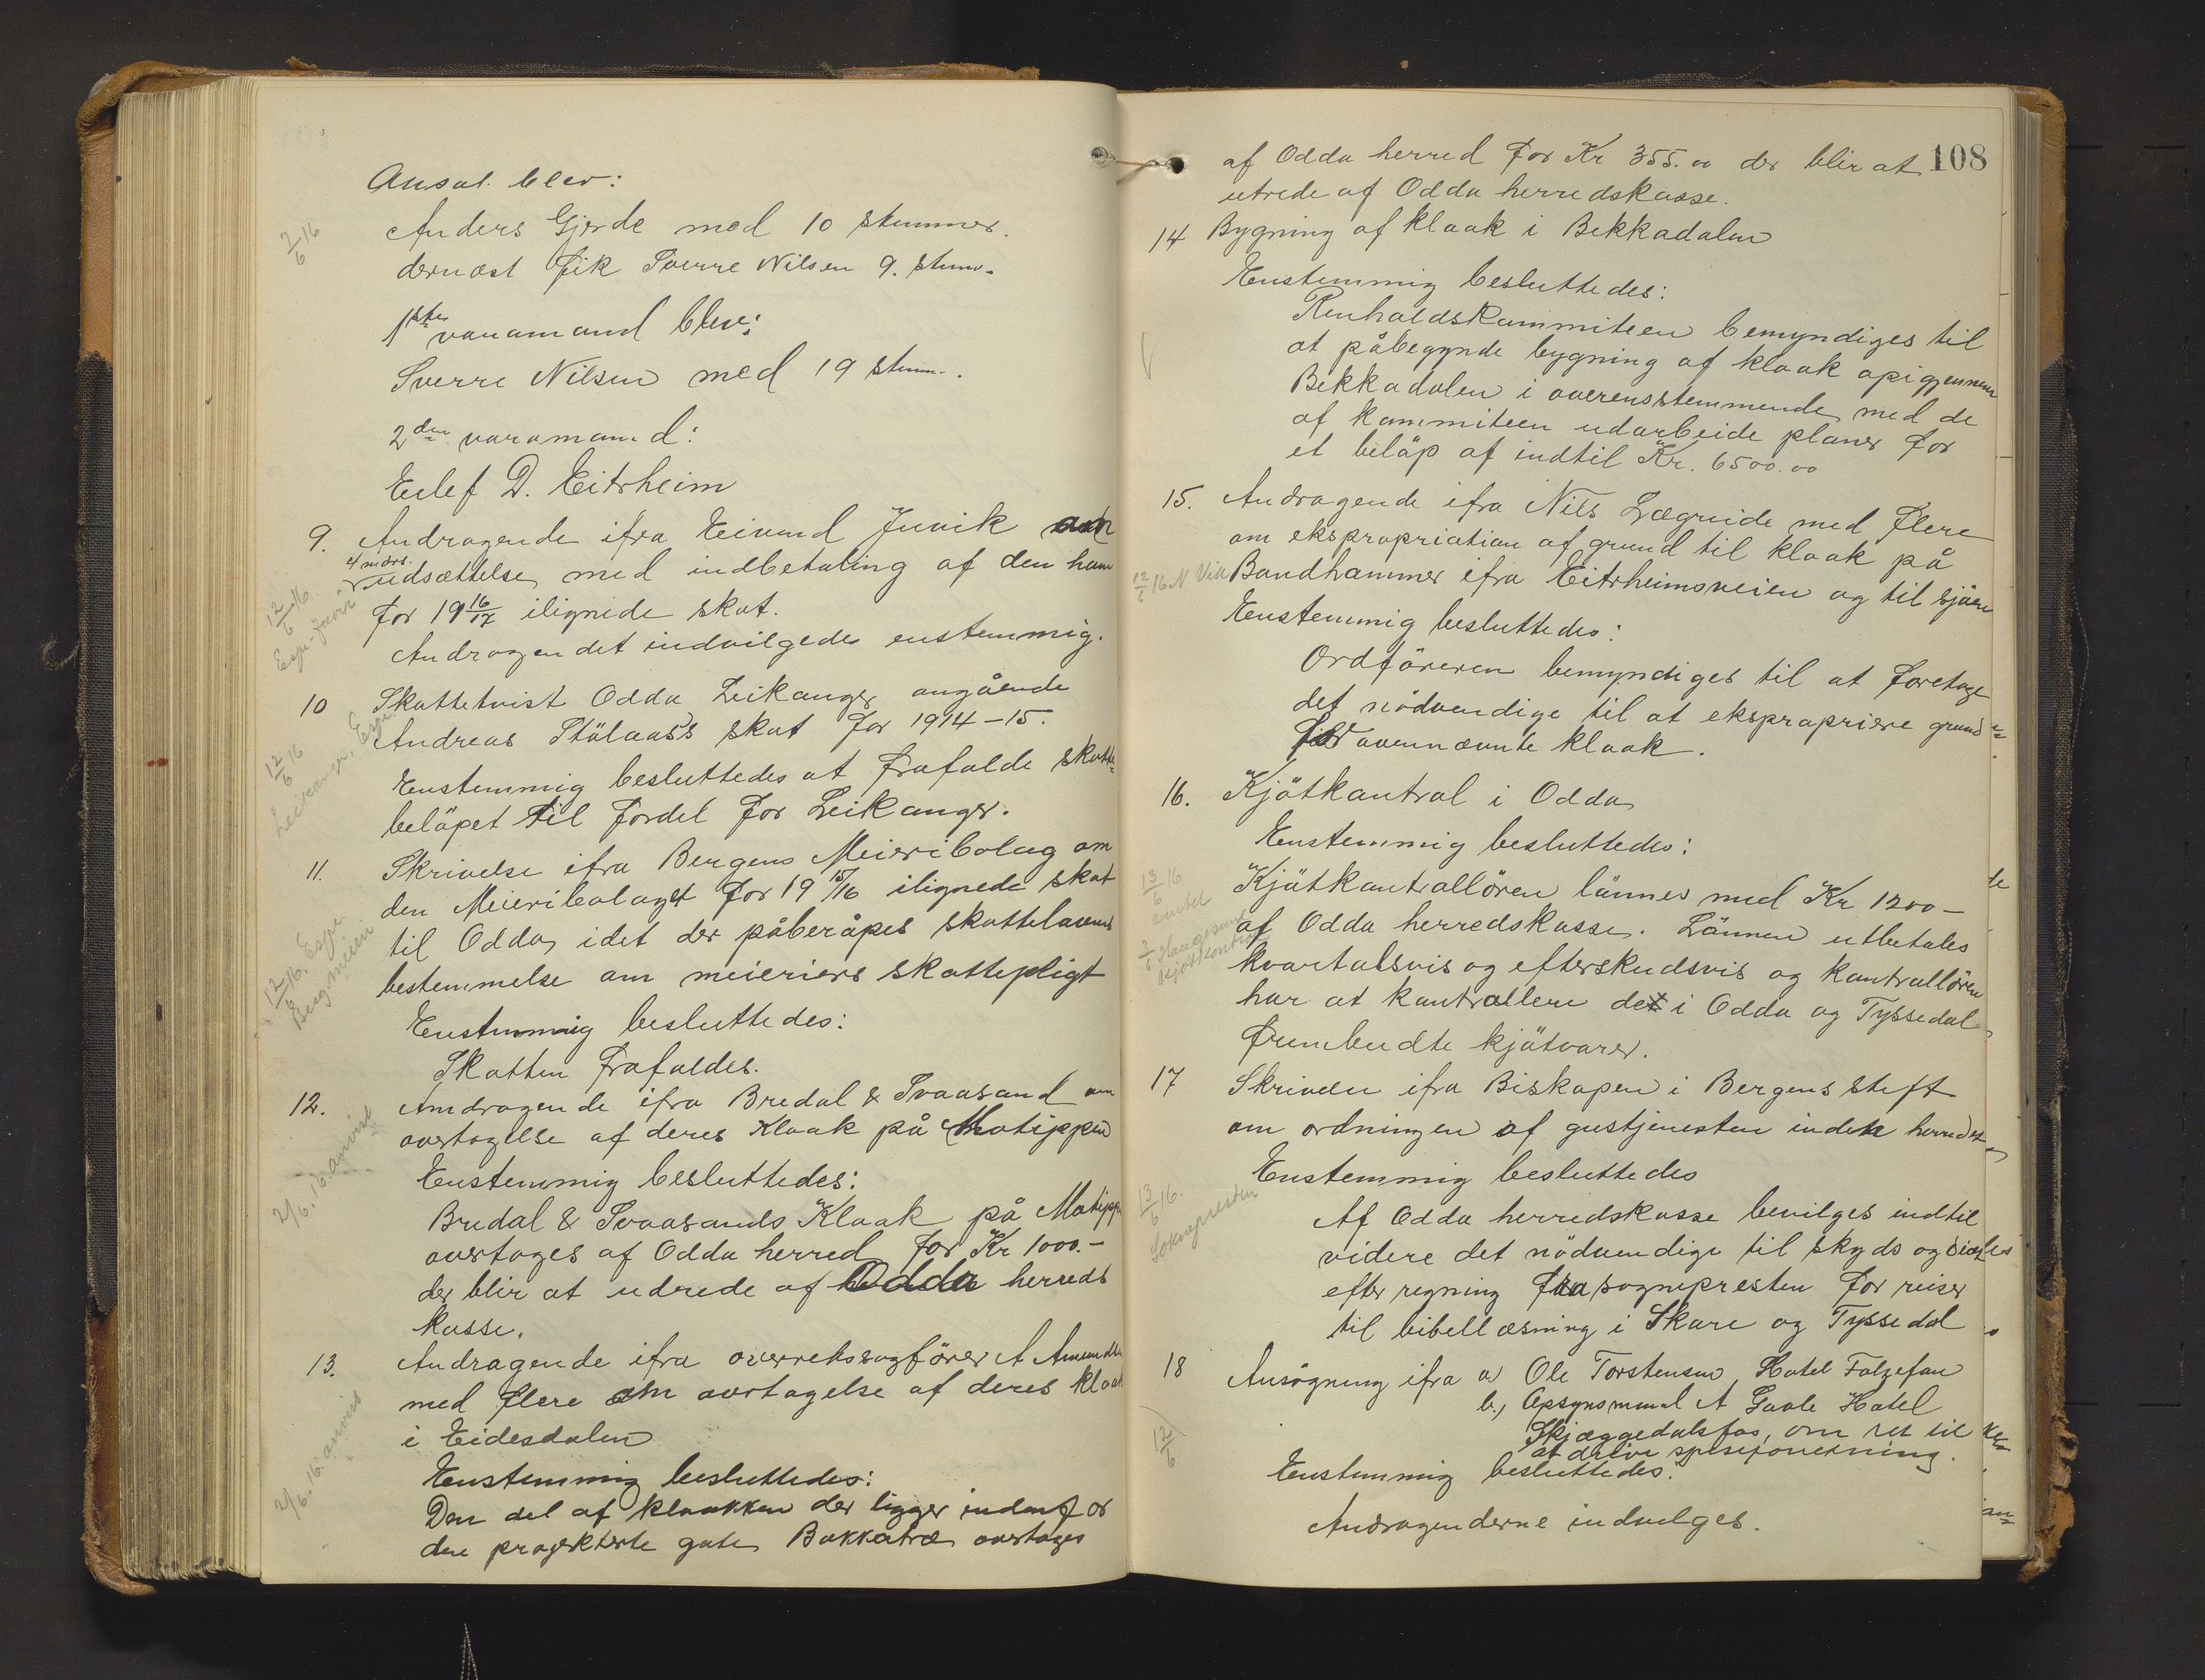 Ansat blev:
7/6 16
Anders Gjerde med 10 stemmer.
dernæst fik Sverre Nilsen 9. stem-
1ste varamand blev:
Sverre Nilsen med 19 stem-.
2den varamand:
Eilef D. Eitrheim
9. Andragende ifra Eivind Juvik om
4 mdrs.
udsættelse med indbetaling af den ham
for 19 16/17 ilignede skat.
Andragendet indvilgedes enstemmig.
12/6 16
Espe Juvik
10 Skattetvist Odda Leikanger angående
Andreas Stålaas's skat for 1914-15.
Enstemmig besluttedes at frafalde skatte-
beløpet til fordel for Leikanger.
12/6 16
Leikanger, Espe
11. Skrivelse ifra Bergens Meieribolag om
den Meieribolaget for 19 15/16 ilignede skat
til Odda, idet der påberåpes skattelovens
bestemmelse om meieriers skattepligt
Enstemmig besluttedes:
Skatten frafaldes.
12/6 16. Espe
Berg. meieri
12. Andragende ifra Bredal & Svaasand om
overtagelse af deres Kloak på Motippen
Enstemmig besluttedes:
Bredal & Svaasands Kloak på Motipp
overtages af Odda herred for Kr 1000.-
der blir at udrede af Odda herreds
kasse.
2/6. 16. anvist
13. Andragende ifra overretssagfører A Amund
med flere om overtagelse af deres kloak
i Eidesdalen
Enstemmig besluttedes:
Den del af kloakken der ligger indenfor
den projekterte gate Bakkatræ overtages
2/6. 16. anvist
108
af Odda herred for Kr 355.00 der blir at
utrede af Odda herredskasse.
14 Bygning af kloak i Bekkadalen
Enstemmig besluttedes:
Renholdskommiteen bemyndiges til
at påbegynde bygning af kloak opigjennem
Bekkadalen i overensstemmende med de
af kommiteen udarbeide planer for
et beløp af indtil Kr. 6500.00
15. Andragende ifra Nils Lægreide med flere
om ekspropriation af grund til kloak på
12/6 16 N
Bandhammer ifra Eitrheimsveien og til sjøen
Enstemmig besluttedes:
Ordføreren bemyndiges til at foretage
det nødvendige til at ekspropriere grund
for ovennævnte kloak.
16. Kjøtkontrol i Odda
Enstemmig besluttedes:
Kjøtkontrolløren lønnes med Kr 1200-
af Odda herredskasse. Lønnen utbetales
kvartalsvis og efterskudsvis og kontrolløren
har at kontrollere det i Odda og Tyssedal
frembudte kjøtvarer.
13/6 16
amtet
3/6 Haugesund
kjøttkontrol
17 Skrivelse ifra Biskopen i Bergens stift
om ordningen af gustjenesten inden herredet
Enstemmig besluttedes
Af Odda herredskasse bevilges indtil
videre det nødvendige til skyds og diæt
efter regning fra sognepresten for reiser
til bibellæsning i Skare og Tyssedal
13/6 16.
Sognepresten
18 Ansøgning ifra a) Ole Torstensen, Hotel Folgefon
b., Opsynsmand A Gaole Hotel
Skjæggedalsfos, om ret til
at drive spiseforretning.
Enstemmig besluttedes:
Andragenderne indvilges.
12/6